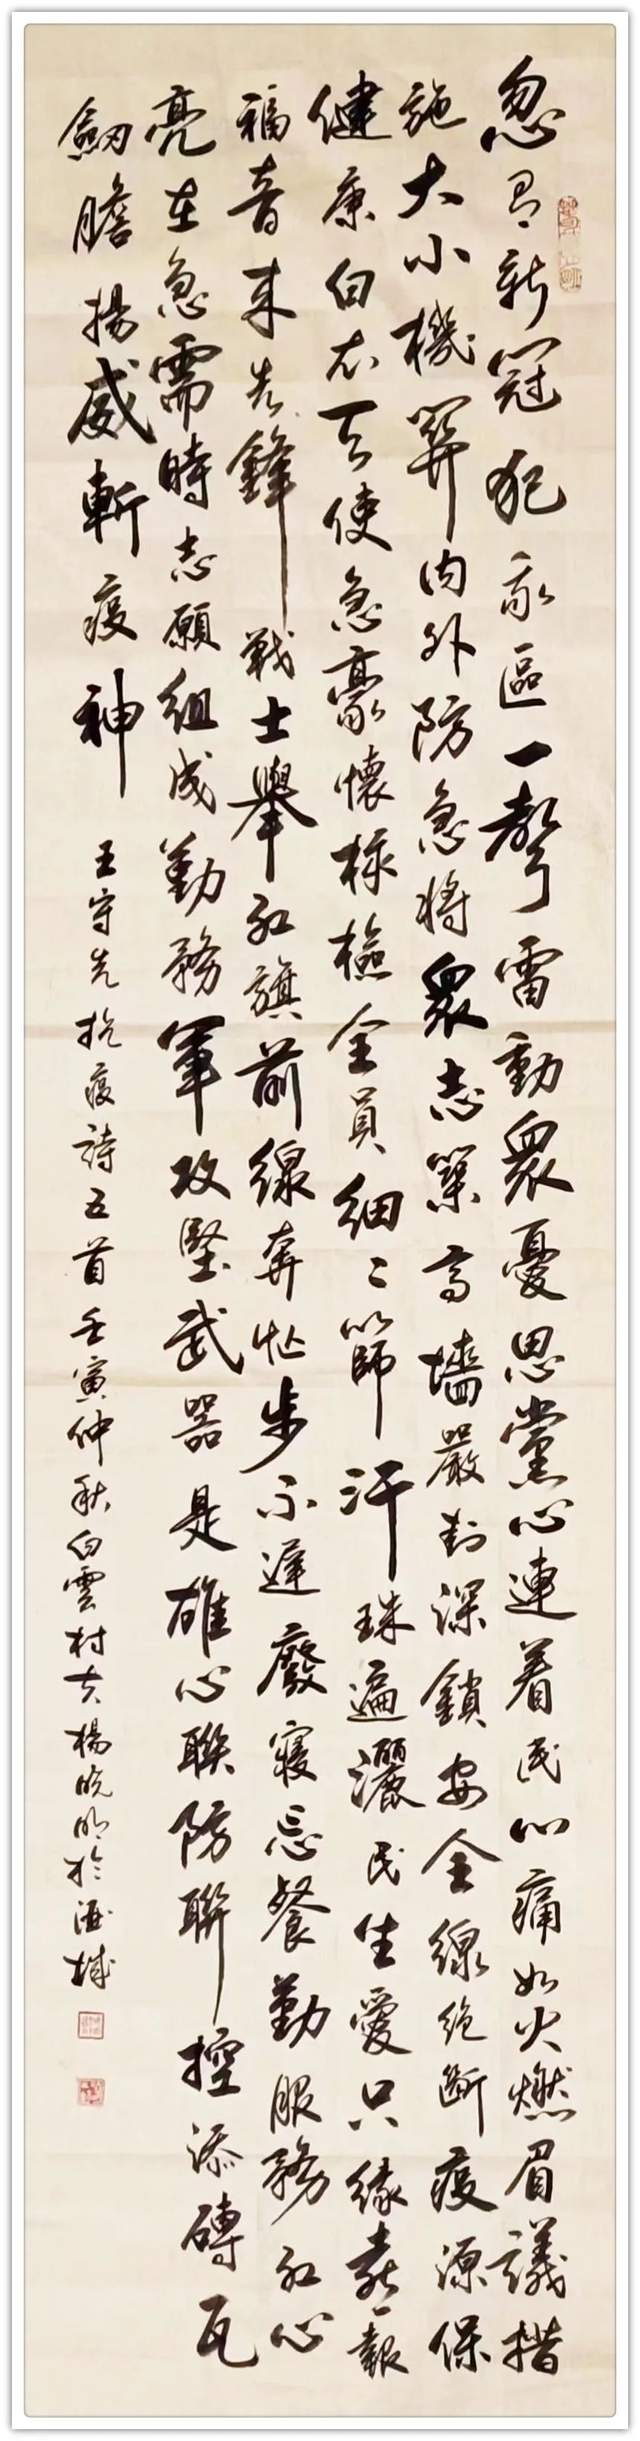 忽有新冠犯我區一聲雷動眾憂思黨心連着民心痛如火燃眉議措
施大小機關內外防急將眾志築高墻嚴封深鎖安全線絕斷疫源保
健康白衣天使急豪懷核檢全員細〻篩汗珠遍灑民生愛只緣喜報
福音來先鋒戰士舉紅旗前線奔忙步不遲廢寢忘餐勤服務紅心
亮在急需時志願組成勤務軍攻堅武器是雄心聯防聯控添磚瓦
劍膽揚威斬疫神
王守先抗疫詩五首壬寅仲秋白雲村夫楊曉明於酒城